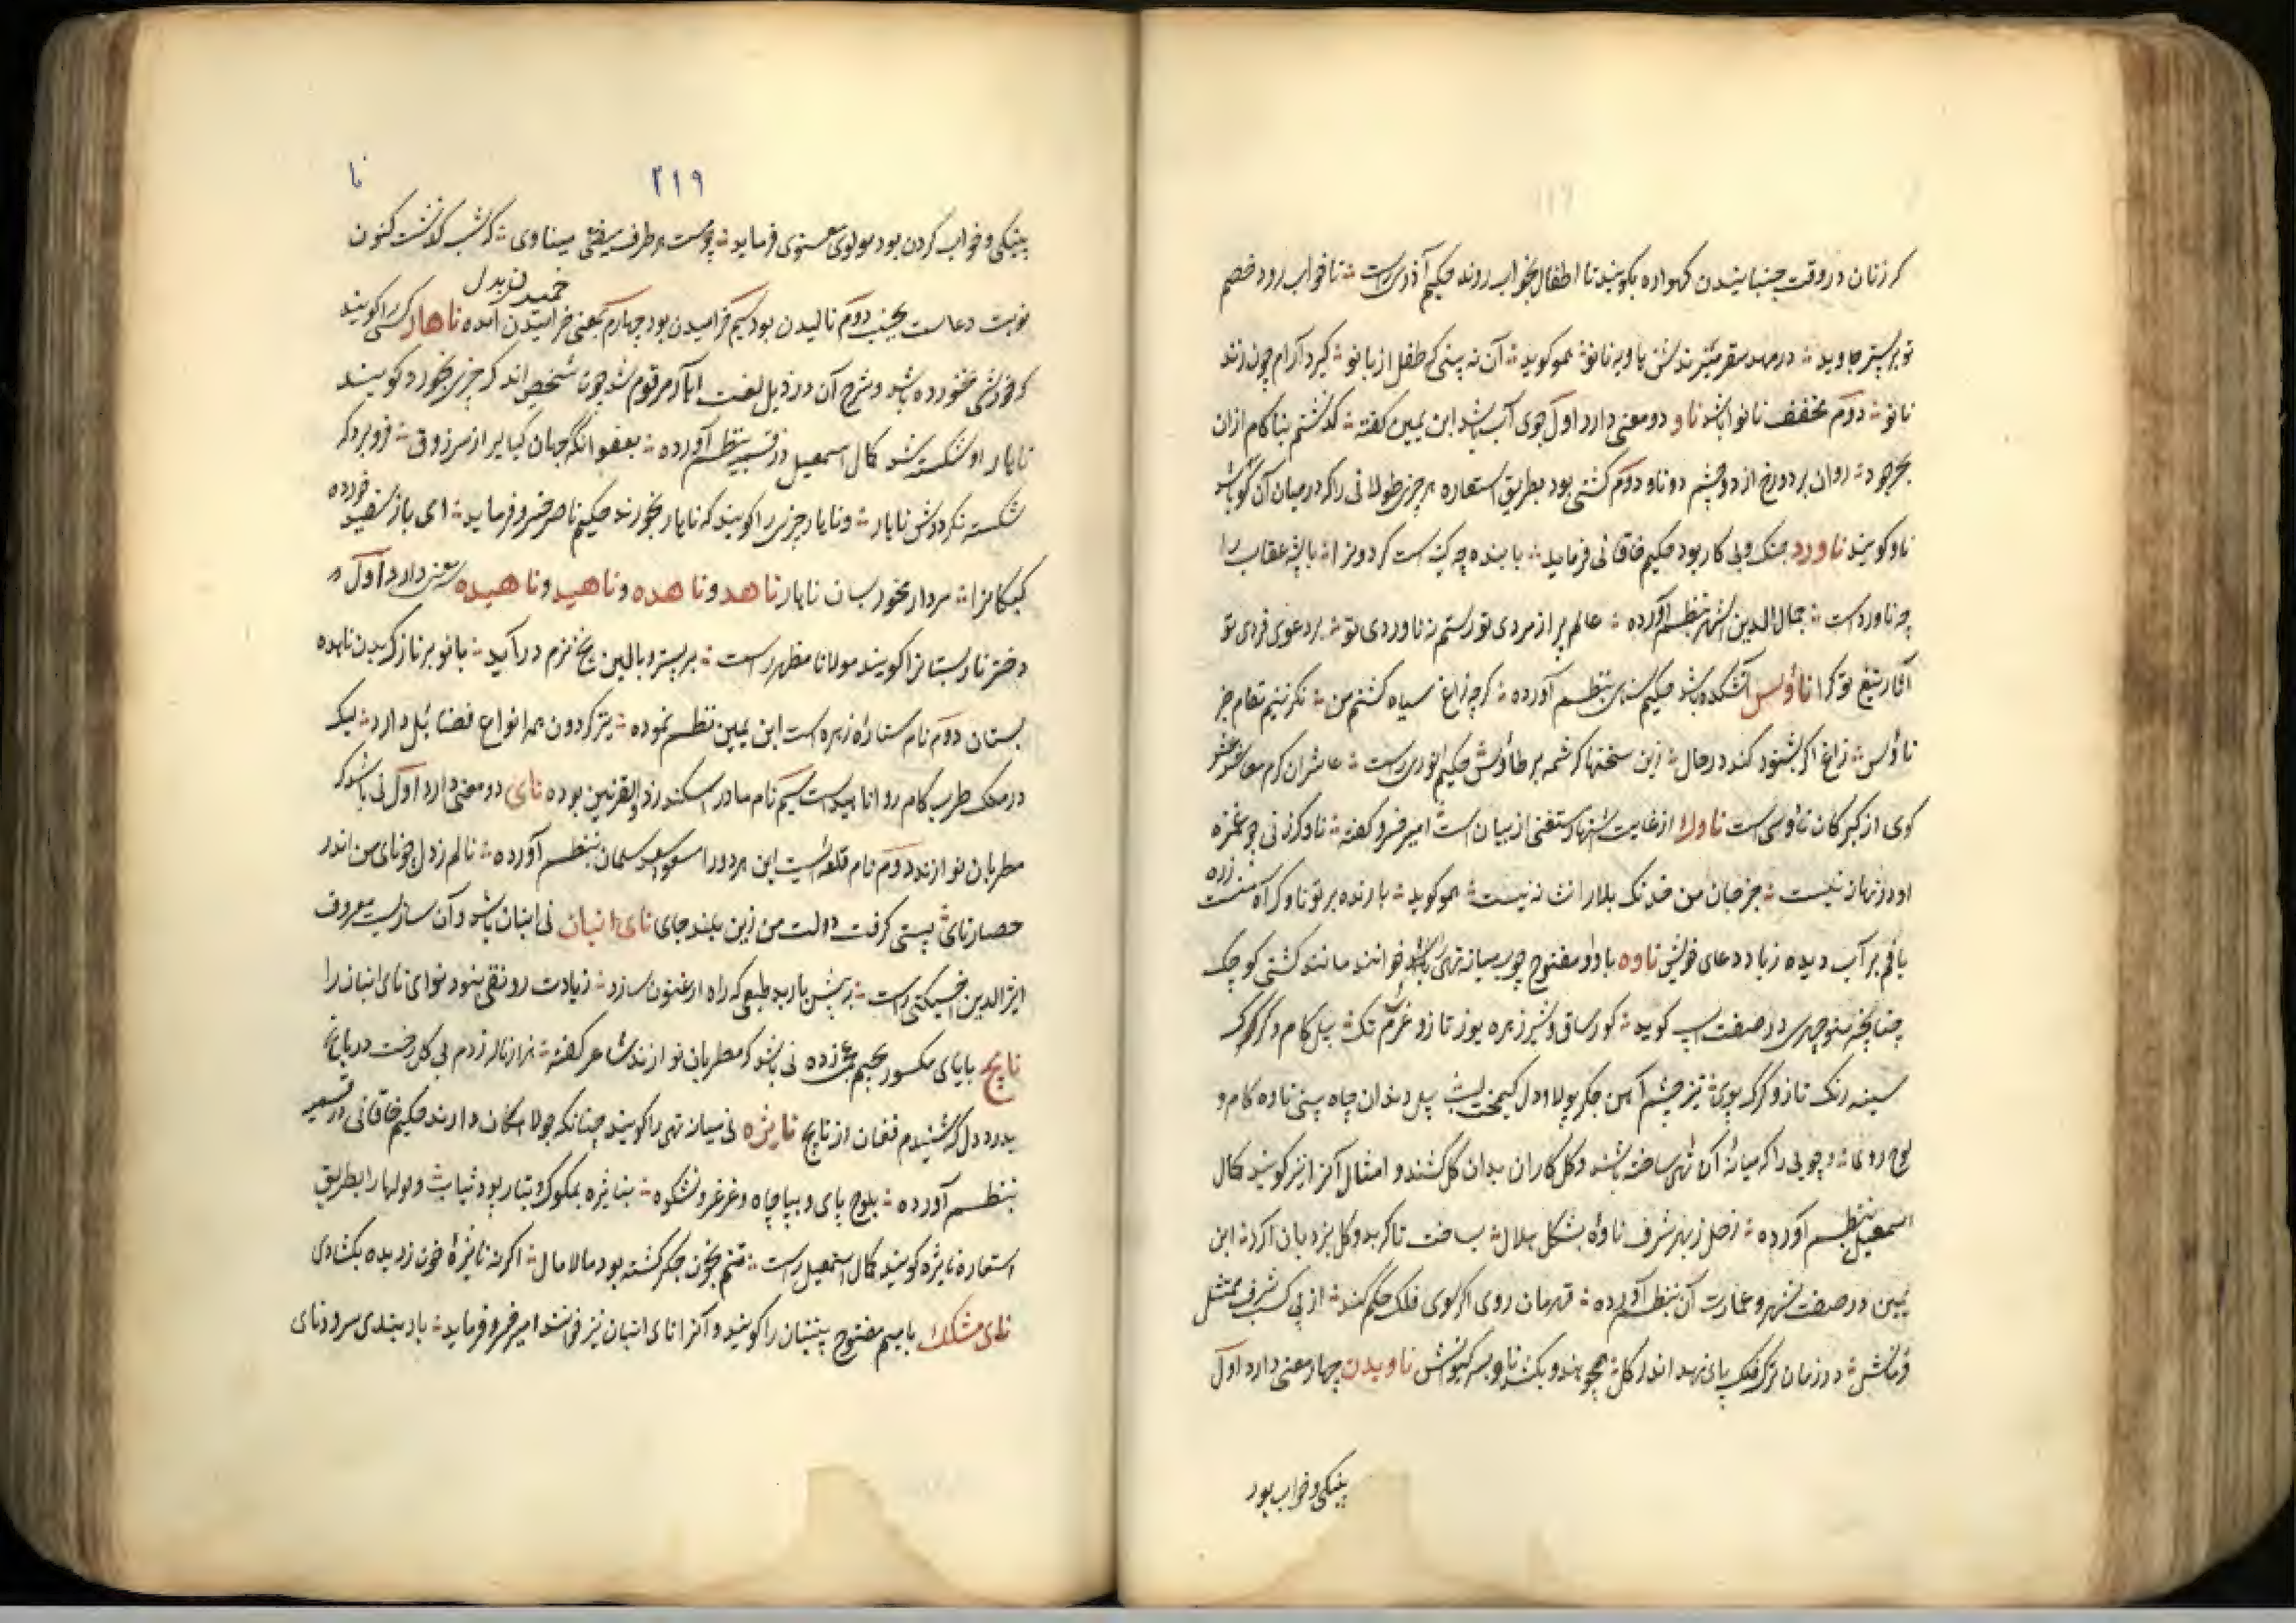 که زنان در وقت جنبانیدن گهواره بگویند تا اطفال بخواب روند حکیم آذری راست تا خواب رود خصم
تو بر بستر جاوید در مهد سقر نانو همو گوید آن نه بینی که طفل از بانو گیرد آرام چون زند
نانو دوم مخفف نانوا باشد ناو دو معنی دارد اول جوی آب باشد ابن یمین گفته گذشتم بناکام ازان
بحر جود روان بر دو رخ از دو چشم دو ناو دوم کشتی بود بطریق استعاره هر چیز طولانی را که درمیان آن گو باشد
ناو گویند ناورد جنگ و پیکار بود حکیم خاقانی فرماید با بنده چه کینه است گردونرا با پشه عقاب را
چه ناوردست جمال الدین اشهری بنظم آورده عالم پر از مردی تو رستم نه ناوردی تو بر دعوی فردی تو
آثار تیغ تو گوا ناؤس آتشکده باشد حکیم سنائی بنظم آورده گرچه زاغ سیاه کشتم من نگزینم مقام جز
ناؤس زاغ اگر بشنود کند در حال زین سخنها کرشمه بر طاؤس حکیم انوری راست
کوی از گبرکان ناؤسی است ناوک از غایت اشتهار مستغنی از بیان است امیر خسرو گفته ناوک زنی چو غمزه
او در زمانه نیست جز جان من خدنگ بلا را نشانه نیست همو گوید بارنده بر تو ناوک آه ستم زده
باقم بر آب دیده زیاد دعای خویش ناوه با واو مفتوح چوب میانه تهی باشد خوانند مانند کشتی کوچک
چنانچه منوچهری در صفت اسپ گوید گور ساق و شیر زهره یوز تاز و غرم تک پیل گام و گرگ
سینه رنگ تاز و گرگ پوی تیز چشم آهن جگر پولاد دل کیمخت لب سیل دندان چاه بینی ناوه کام و
لوح روی و چوبی را که میانه آن تهی ساخته باشند و گل کاران بدان گل کشند و امثال آنرا نیز گویند کمال
اسمعیل بنظم آورده زحل ز بهر شرف ناوه بشکل هلال بساخت تا کربد و گل بنزد بان ابن
یمین در صفت شهر و عمارت آن بنظم آورده قهرمان روی اگر سوی فلک حکم کند از پی کسب شرف ممتثل
فرمانش در زمان ترک فلک پای نهد اندر گل همچو هندو بکشد ناوه بسر کیوانش ناویدن چهار معنی دارد اول
پینکی و خواب بود
۲۱۹ نا
پینکی و خواب کردن بود مولوی معنوی فرماید میناوی که شب گذشت کنون
خمیدن بدل
نوبت دعاست بجنب دوم نالیدن بود سیم خرامیدن بود چهارم بمعنی خرامیدن آمده ناهار کسی را گویند
که خورشی نخورده باشد و شرح آن در ذیل لغت آهار مرقوم شد چون شخصی اندک چیزی بخورد گویند
ناهار او شکسته شد کمال اسمعیل در قسمیه بنظم آورده بعفو آنکه جهان گیا برای از سر ذوق فرو برد که
شکسته نگرددش ناهار و ناهار چیزی را گویند که ناهار بخورند حکیم ناصر خسرو فرماید ای باز سفید خورده
کبکانرا مردار مخور بسان ناهار ناهد و ناهده و ناهید و ناهیده سه معنی دارد اول
دختر نارپستانرا گویند مولانا مظهر راست بر بستر و بالین چو نرم در آید بانو بر ناز کبدن ناهده
پستان دوم نام ستاره زهره است ابن یمین نظم نموده تیر گردون همه انواع فضائل دارد لیک
در ملک طرب کام روا ناهید است سیم نام مادر اسکندر ذوالقرنین بوده نای دو معنی دارد اول نی باشد که
مطربان نوازند دوم نام قلعه ایست این هر دو را مسعود سعد سلمان بنظم آورده نالم ز دل چو نای من اندر
حصار نای پستی گرفت دولت من زین بلند جای نای انبان نی انبان باشد و آن سازیست معروف
اثیر الدین اخسیکتی راست به پیش باربد طبعی که راه ارغنون سازد زیادت رونقی نبود نوای نای انبان را
نایچ بایای مکسور بجیم عجمی زده نی باشد که مطربان نوازند شاعر گفته هزار ناله زدم بی گل رخت در باغ
بدرد دل که شنیدم فغان از نایچ نایژه نی میانه تهی را گویند چنانکه جولاهگان دارند حکیم خاقانی در قسمیه
بنظم آورده بلوح پای و بپاچاه و غرغر و نشکوه بنایژه بمکوک و بتار پود ثیاب و لولها را بطریق
استعاره نایژه گویند کمال اسمعیل راست تنم بخون جگر گشته بود مالامال اگر نه نایژه خون ز دیده بگشادی
نای مشک با میم مفتوح پنبنان را گویند و آنرا نای انبان نیز خوانند امیر خسرو فرماید باد سرود نای